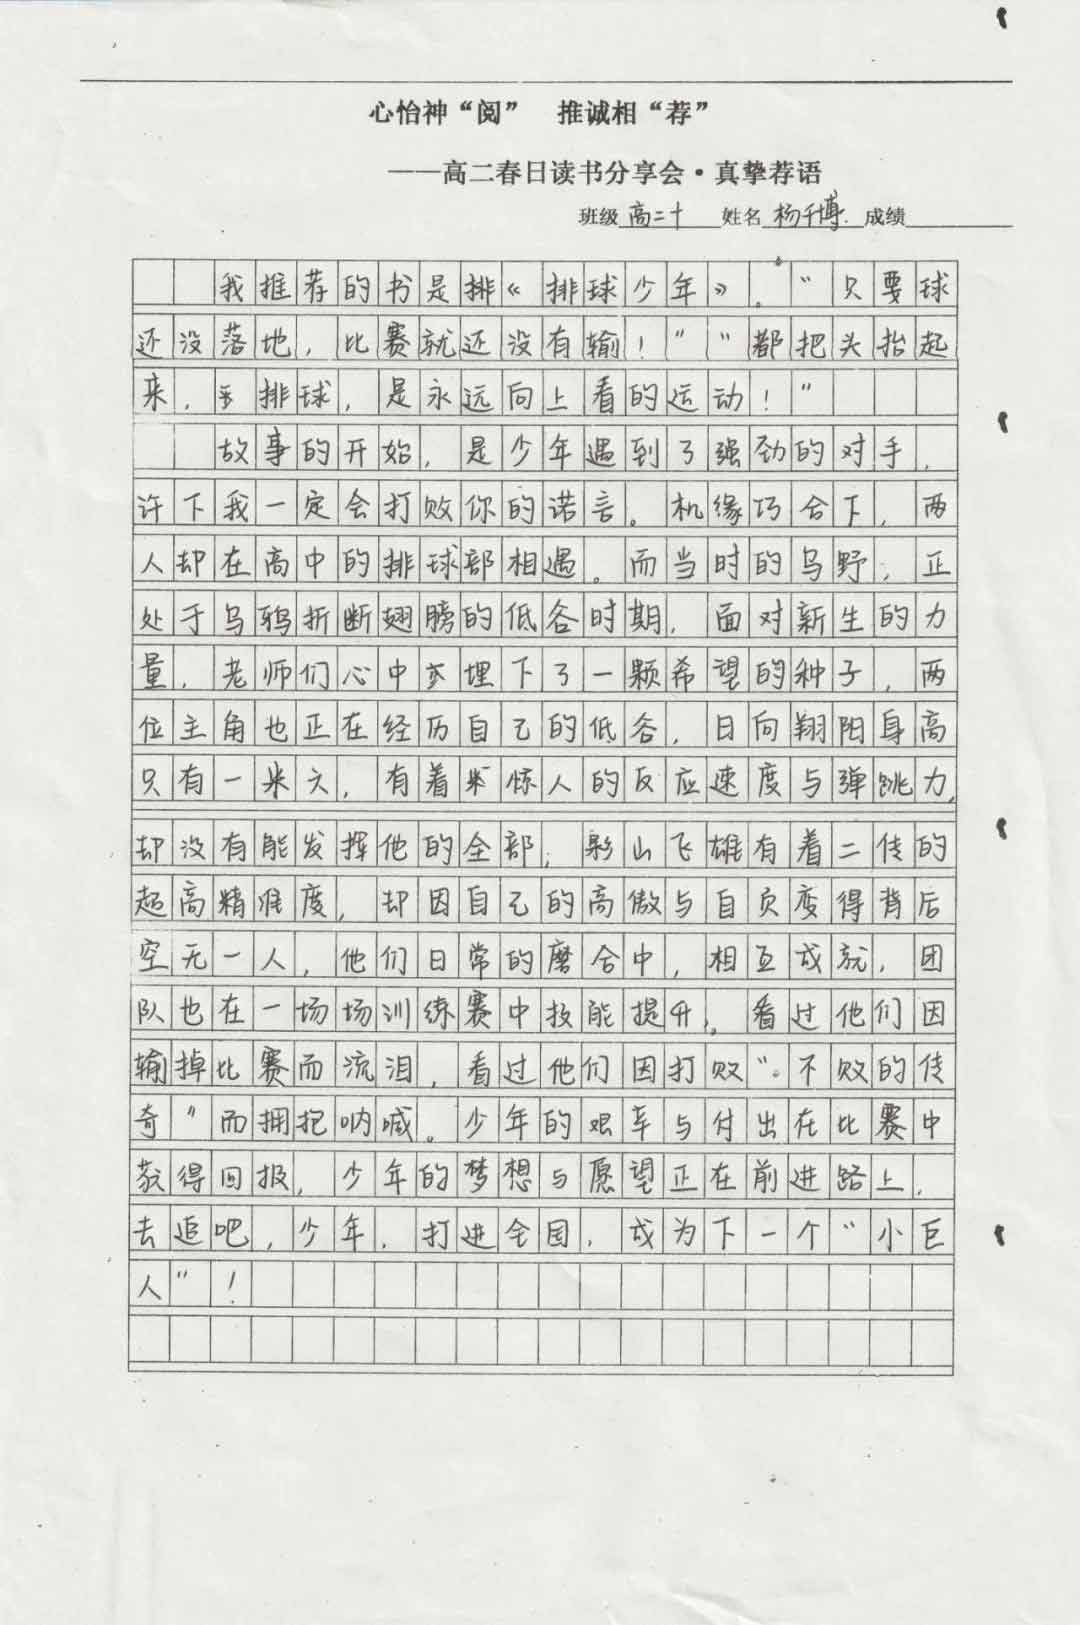 心怡神“阅”　推诚相“荐”
——高二春日读书分享会·真挚荐语
班级 高二十 姓名 杨千博 成绩
我推荐的书是排《排球少年》。“只要球
还没落地，比赛就还没有输！”“都把头抬起
来，排球，是永远向上看的运动！”
故事的开始，是少年遇到了强劲的对手，
许下我一定会打败你的诺言。机缘巧合下，两
人却在高中的排球部相遇。而当时的乌野，正
处于乌鸦折断翅膀的低谷时期，面对新生的力
量，老师们心中亦埋下了一颗希望的种子，两
位主角也正在经历自己的低谷，日向翔阳身高
只有一米六，有着惊人的反应速度与弹跳力，
却没有能发挥他的全部，影山飞雄有着二传的
超高精准度，却因自己的高傲与自负变得背后
空无一人，他们日常的磨合中，相互成就，团
队也在一场场训练赛中技能提升。看过他们因
输掉比赛而流泪，看过他们因打败“不败的传
奇”而拥抱呐喊。少年的艰辛与付出在比赛中
获得回报，少年的梦想与愿望正在前进路上，
去追吧，少年，打进全国，成为下一个“小巨
人”！